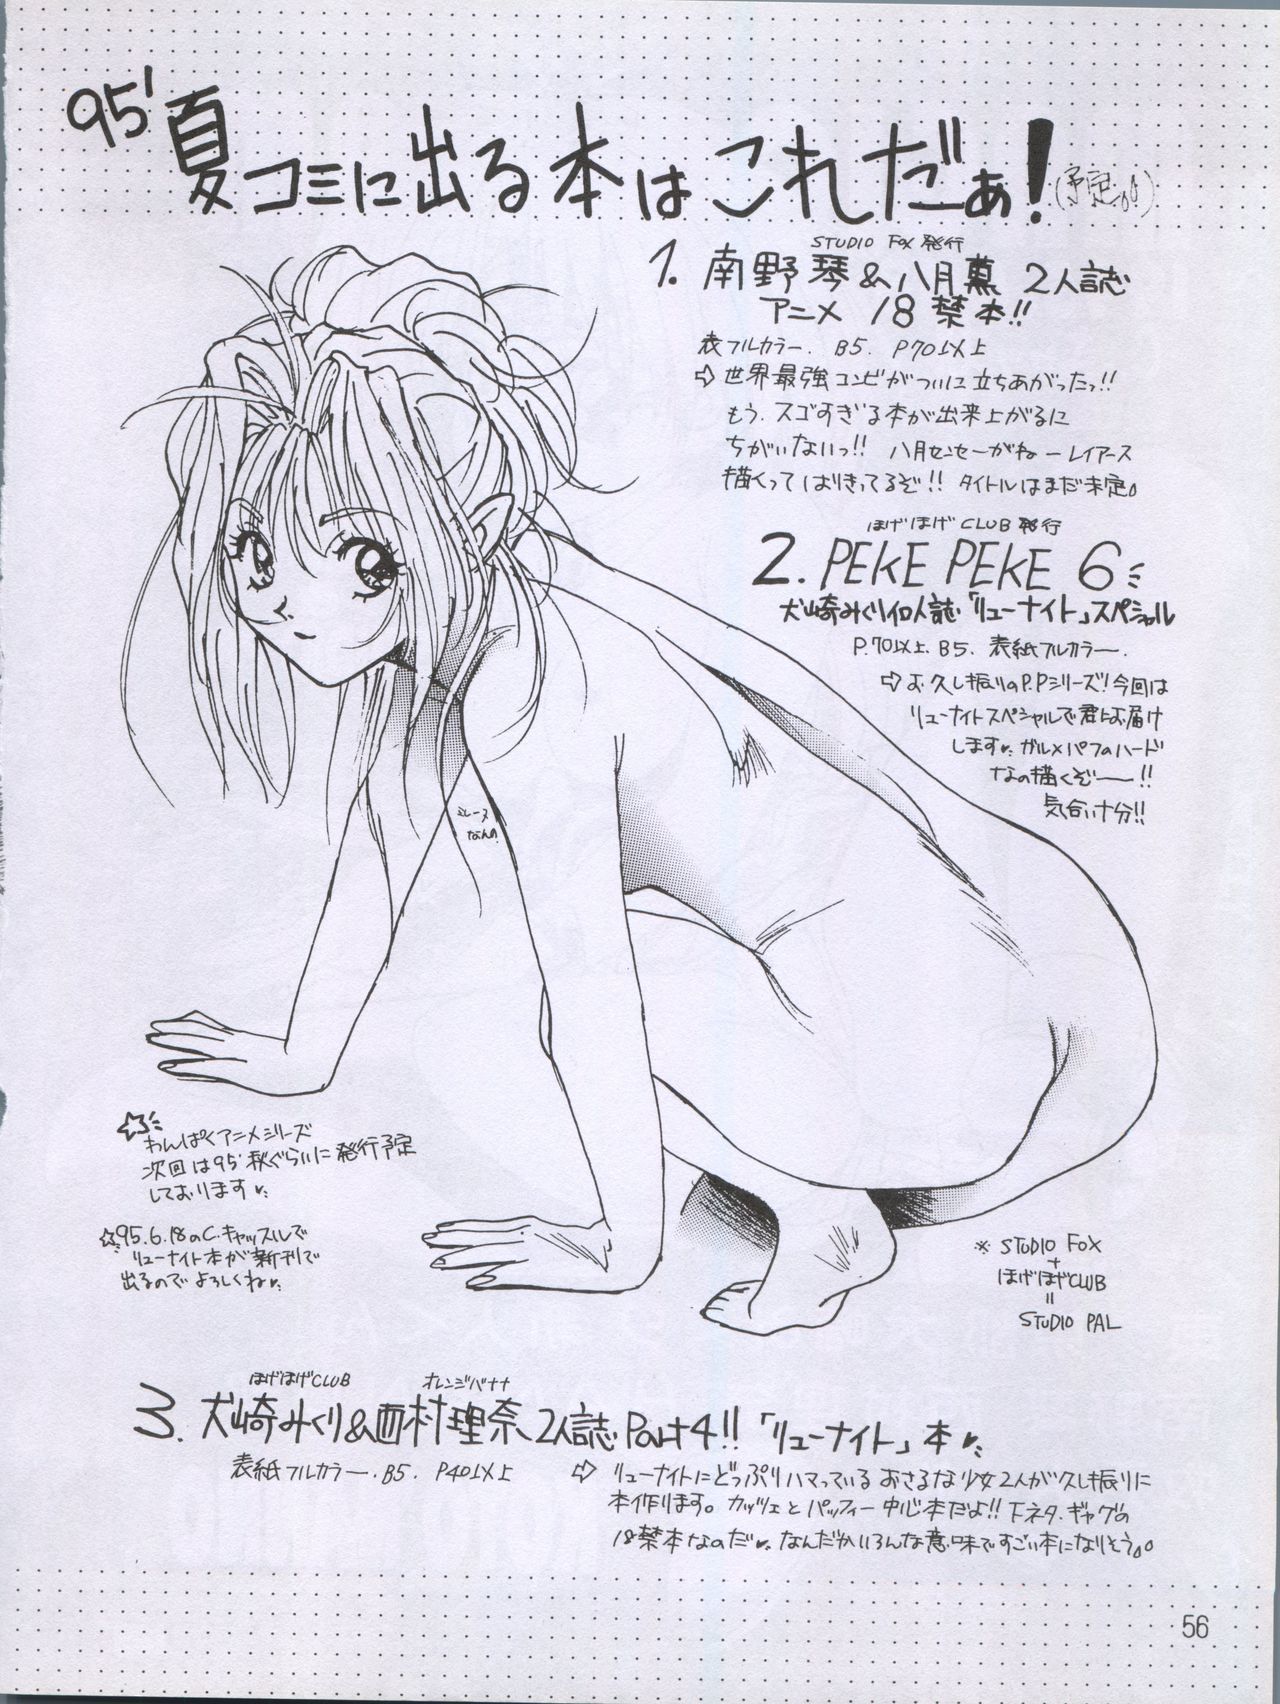 95' 夏コミに出る本はこれだぁ!(予定)
STUDIO FOX 発行
1. 南野琴&八月薫 2人誌
アニメ 18禁本!!
表フルカラー. B5. P70以上
⇨ 世界最強コンビがついに立ちあがったっ!!
もう、スゴすぎる本が出来上がるに
ちがいないっ!! 八月センセーがねーレイアース
描くってはりきってるぞ!! タイトルはまだ未定。
ほげほげCLUB 発行
2. PEKE PEKE 6
犬崎みくり個人誌「リューナイト」スペシャル
P.70以上. B5. 表紙フルカラー.
⇨ お久し振りのP.Pシリーズ!今回は
リューナイトスペシャルで君にお届け
します♥ ガルメパフのハード
なの描くぞ――!!
気合い十分!!
ミレーヌ
なんの
☆わんぱくアニメシリーズ
次回は95'秋ぐらいに発行予定
しております♥
☆95.6.18のC.キャッスルで
リューナイト本が新刊で
出るのでよろしくね♥
※ STUDIO FOX
+
ほげほげCLUB
=
STUDIO PAL
ほげほげCLUB オレンジバナナ
3. 犬崎みくり&西村理奈 2人誌 Part4!!「リューナイト」本♥
表紙フルカラー. B5. P40以上
⇨ リューナイトにどっぷりハマっているおさるな少女2人が久し振りに
本作ります。カッツェとパッフィー中心本だよ!! 下ネタ・ギャグの
18禁本なのだ♥ なんだかいろんな意味ですごい本になりそう。
56